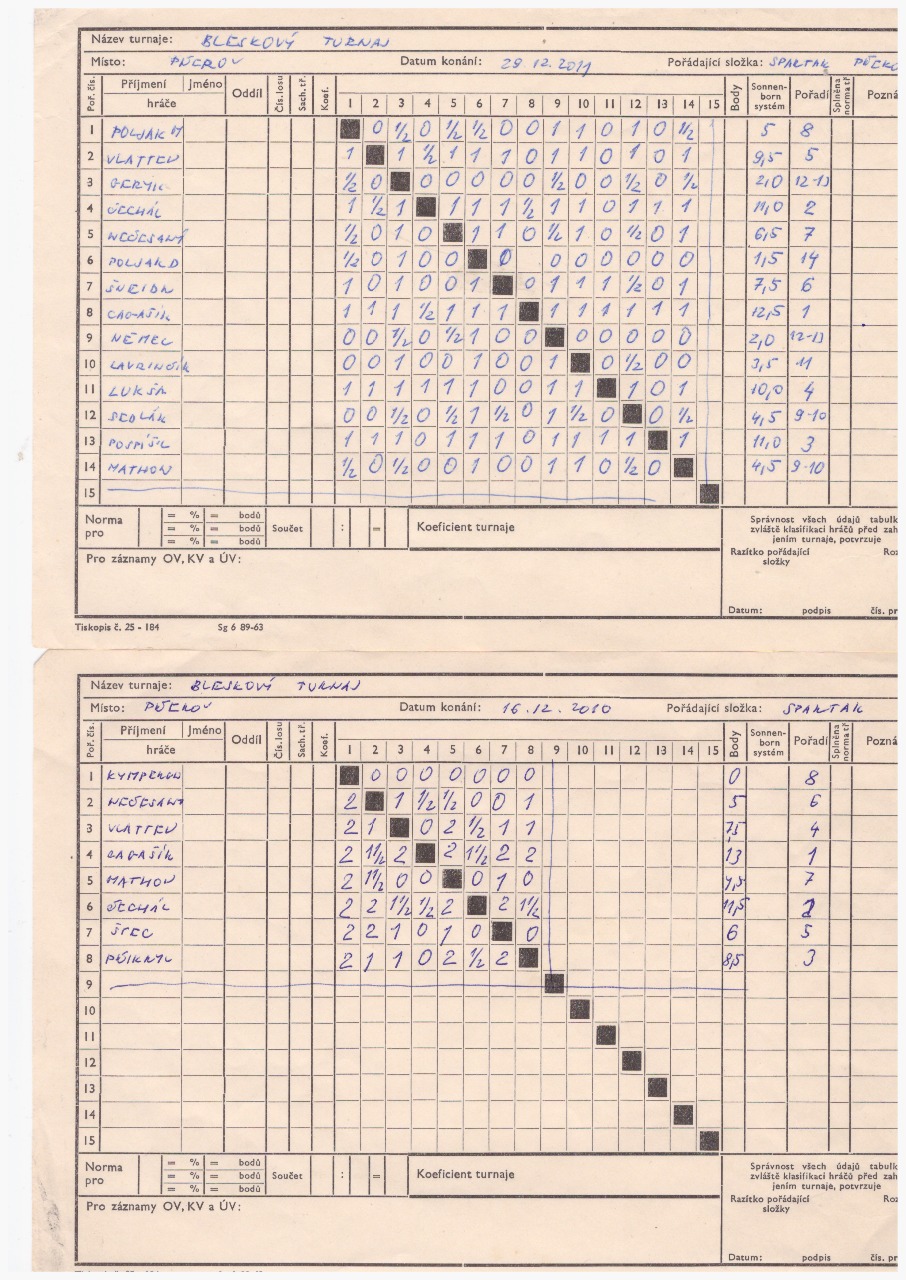 Název turnaje: BLESKOVÝ TURNAJ
Místo: PŘEROV Datum konání: 29.12.2011 Pořádající složka: SPARTAK PŘERO
Poř. čís. Příjmení Jméno hráče Oddíl Čís. losu Šach. tř. Koef. 1 2 3 4 5 6 7 8 9 10 11 12 13 14 15 Body Sonnenborn systém Pořadí Splněna norma tř Pozná
1 POLJAK M 0 ½ 0 ½ ½ 0 0 1 1 0 1 0 ½ 5 8
2 VLATTEN 1 1 ½ 1 1 1 0 1 1 0 1 0 1 9,5 5
3 GERYK ½ 0 0 0 0 0 0 ½ 0 0 ½ 0 ½ 2,0 12-13
4 ČECHÁL 1 ½ 1 1 1 1 ½ 1 1 0 1 1 1 11,0 2
5 NEČESANÝ ½ 0 1 0 1 1 0 ½ 1 0 ½ 0 1 6,5 7
6 POLJAK D ½ 0 1 0 0 0 0 0 0 0 0 0 1,5 14
7 ŠNEIDR 1 0 1 0 0 1 0 1 1 1 ½ 0 1 7,5 6
8 GAGAŠÍK 1 1 1 ½ 1 1 1 1 1 1 1 1 1 12,5 1
9 NĚMEC 0 0 ½ 0 ½ 1 0 0 0 0 0 0 0 2,0 12-13
10 LAVRINČÍK 0 0 1 0 0 1 0 0 1 0 ½ 0 0 3,5 11
11 LUKŠA 1 1 1 1 1 1 0 0 1 1 1 0 1 10,0 4
12 SEDLÁK 0 0 ½ 0 ½ 1 ½ 0 1 ½ 0 0 ½ 4,5 9-10
13 POSPÍŠIL 1 1 1 0 1 1 1 0 1 1 1 1 1 11,0 3
14 MATHON ½ 0 ½ 0 0 1 0 0 1 1 0 ½ 0 4,5 9-10
15
Norma pro = % = bodů Součet : = Koeficient turnaje Správnost všech údajů tabulk
= % = bodů zvláště klasifikaci hráčů před zah
= % = bodů jením turnaje, potvrzuje
Pro záznamy OV, KV a ÚV: Razítko pořádající složky Roz
Datum: podpis čís. pr
Tiskopis č. 25 - 184 Sg 6 89-63
Název turnaje: BLESKOVÝ TURNAJ
Místo: PŘEROV Datum konání: 16.12.2010 Pořádající složka: SPARTAK
Poř. čís. Příjmení Jméno hráče Oddíl Čís. losu Šach. tř. Koef. 1 2 3 4 5 6 7 8 9 10 11 12 13 14 15 Body Sonnenborn systém Pořadí Splněna norma tř Pozná
1 0 0 0 0 0 0 0 0 8
2 NEČESANÝ 2 1 ½ ½ 0 0 1 5 6
3 VLATTEN 2 1 0 2 ½ 1 1 7,5 4
4 GAGAŠÍK 2 1½ 2 2 1½ 2 2 13 1
5 MATHON 2 1½ 0 0 0 1 0 4,5 7
6 ČECHÁL 2 2 1½ ½ 2 2 1½ 11,5 2
7 ŠPEC 2 2 1 0 1 0 0 6 5
8 PŘIKRYL 2 1 1 0 2 ½ 2 8,5 3
9
10
11
12
13
14
15
Norma pro = % = bodů Součet : = Koeficient turnaje Správnost všech údajů tabulk
= % = bodů zvláště klasifikaci hráčů před zah
= % = bodů jením turnaje, potvrzuje
Pro záznamy OV, KV a ÚV: Razítko pořádající složky Roz
Datum: podpis čís. pr